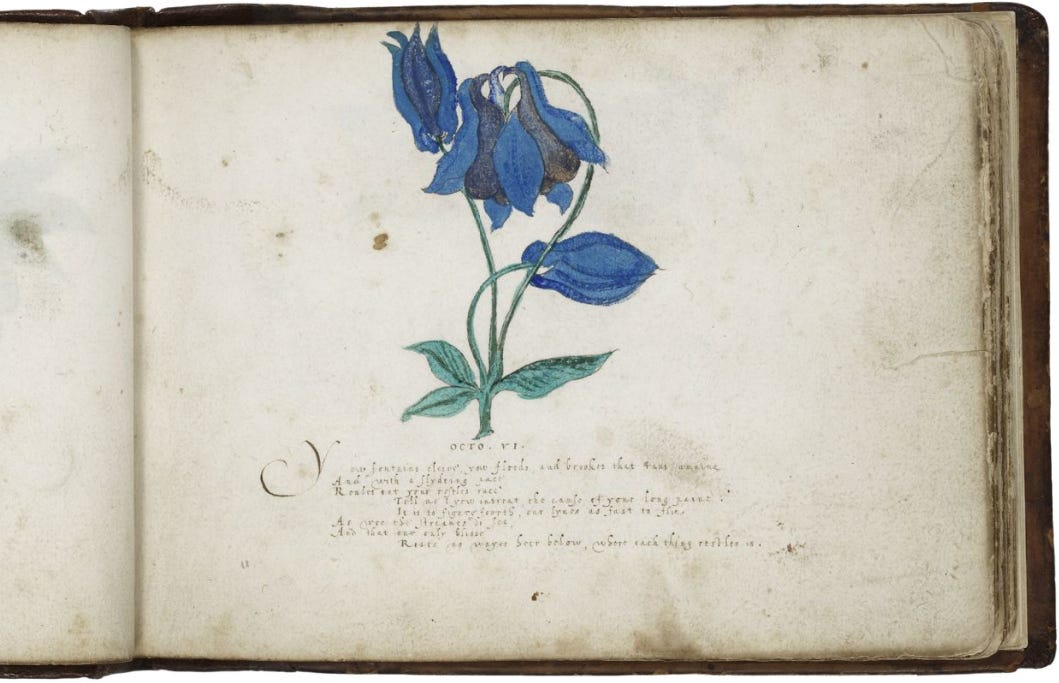 OCTO. VI.
Yow fontains cleire, yow floods, and brookes that
And with a slydeing pace
your restles race
Tell us I yow intreat the cause of your long paine?
It is to figure foorth, our lyves as fast to flie,
As wee the streames
And that our only blisse
Rests no wayes heir below, where each thing restles is.